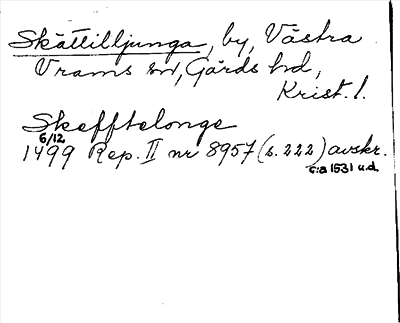 Skättilljunga, by, Västra
Vrams sn, Gärds hd,
Krist. l.
Skefftelonge
6/12
1499 Rep. II nr 8957 (s. 222) avskr.
c:a 1531 u.d.